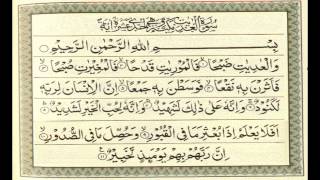 سورة العديت مكية وهي احدى عشرة اية
بِسْمِ اللهِ الرَّحْمٰنِ الرَّحِيْمِ
وَالْعٰدِيٰتِ ضَبْحًا ۝ فَالْمُوْرِيٰتِ قَدْحًا ۝ فَالْمُغِيْرٰتِ صُبْحًا ۝
فَاَثَرْنَ بِهٖ نَقْعًا ۝ فَوَسَطْنَ بِهٖ جَمْعًا ۝ اِنَّ الْاِنْسَانَ لِرَبِّهٖ
لَكَنُوْدٌ ۝ وَاِنَّهٗ عَلٰى ذٰلِكَ لَشَهِيْدٌ ۝ وَاِنَّهٗ لِحُبِّ الْخَيْرِ لَشَدِيْدٌ ۝
اَفَلَا يَعْلَمُ اِذَا بُعْثِرَ مَا فِى الْقُبُوْرِ ۝ وَحُصِّلَ مَا فِى الصُّدُوْرِ ۝
اِنَّ رَبَّهُمْ بِهِمْ يَوْمَئِذٍ لَّخَبِيْرٌ ۝